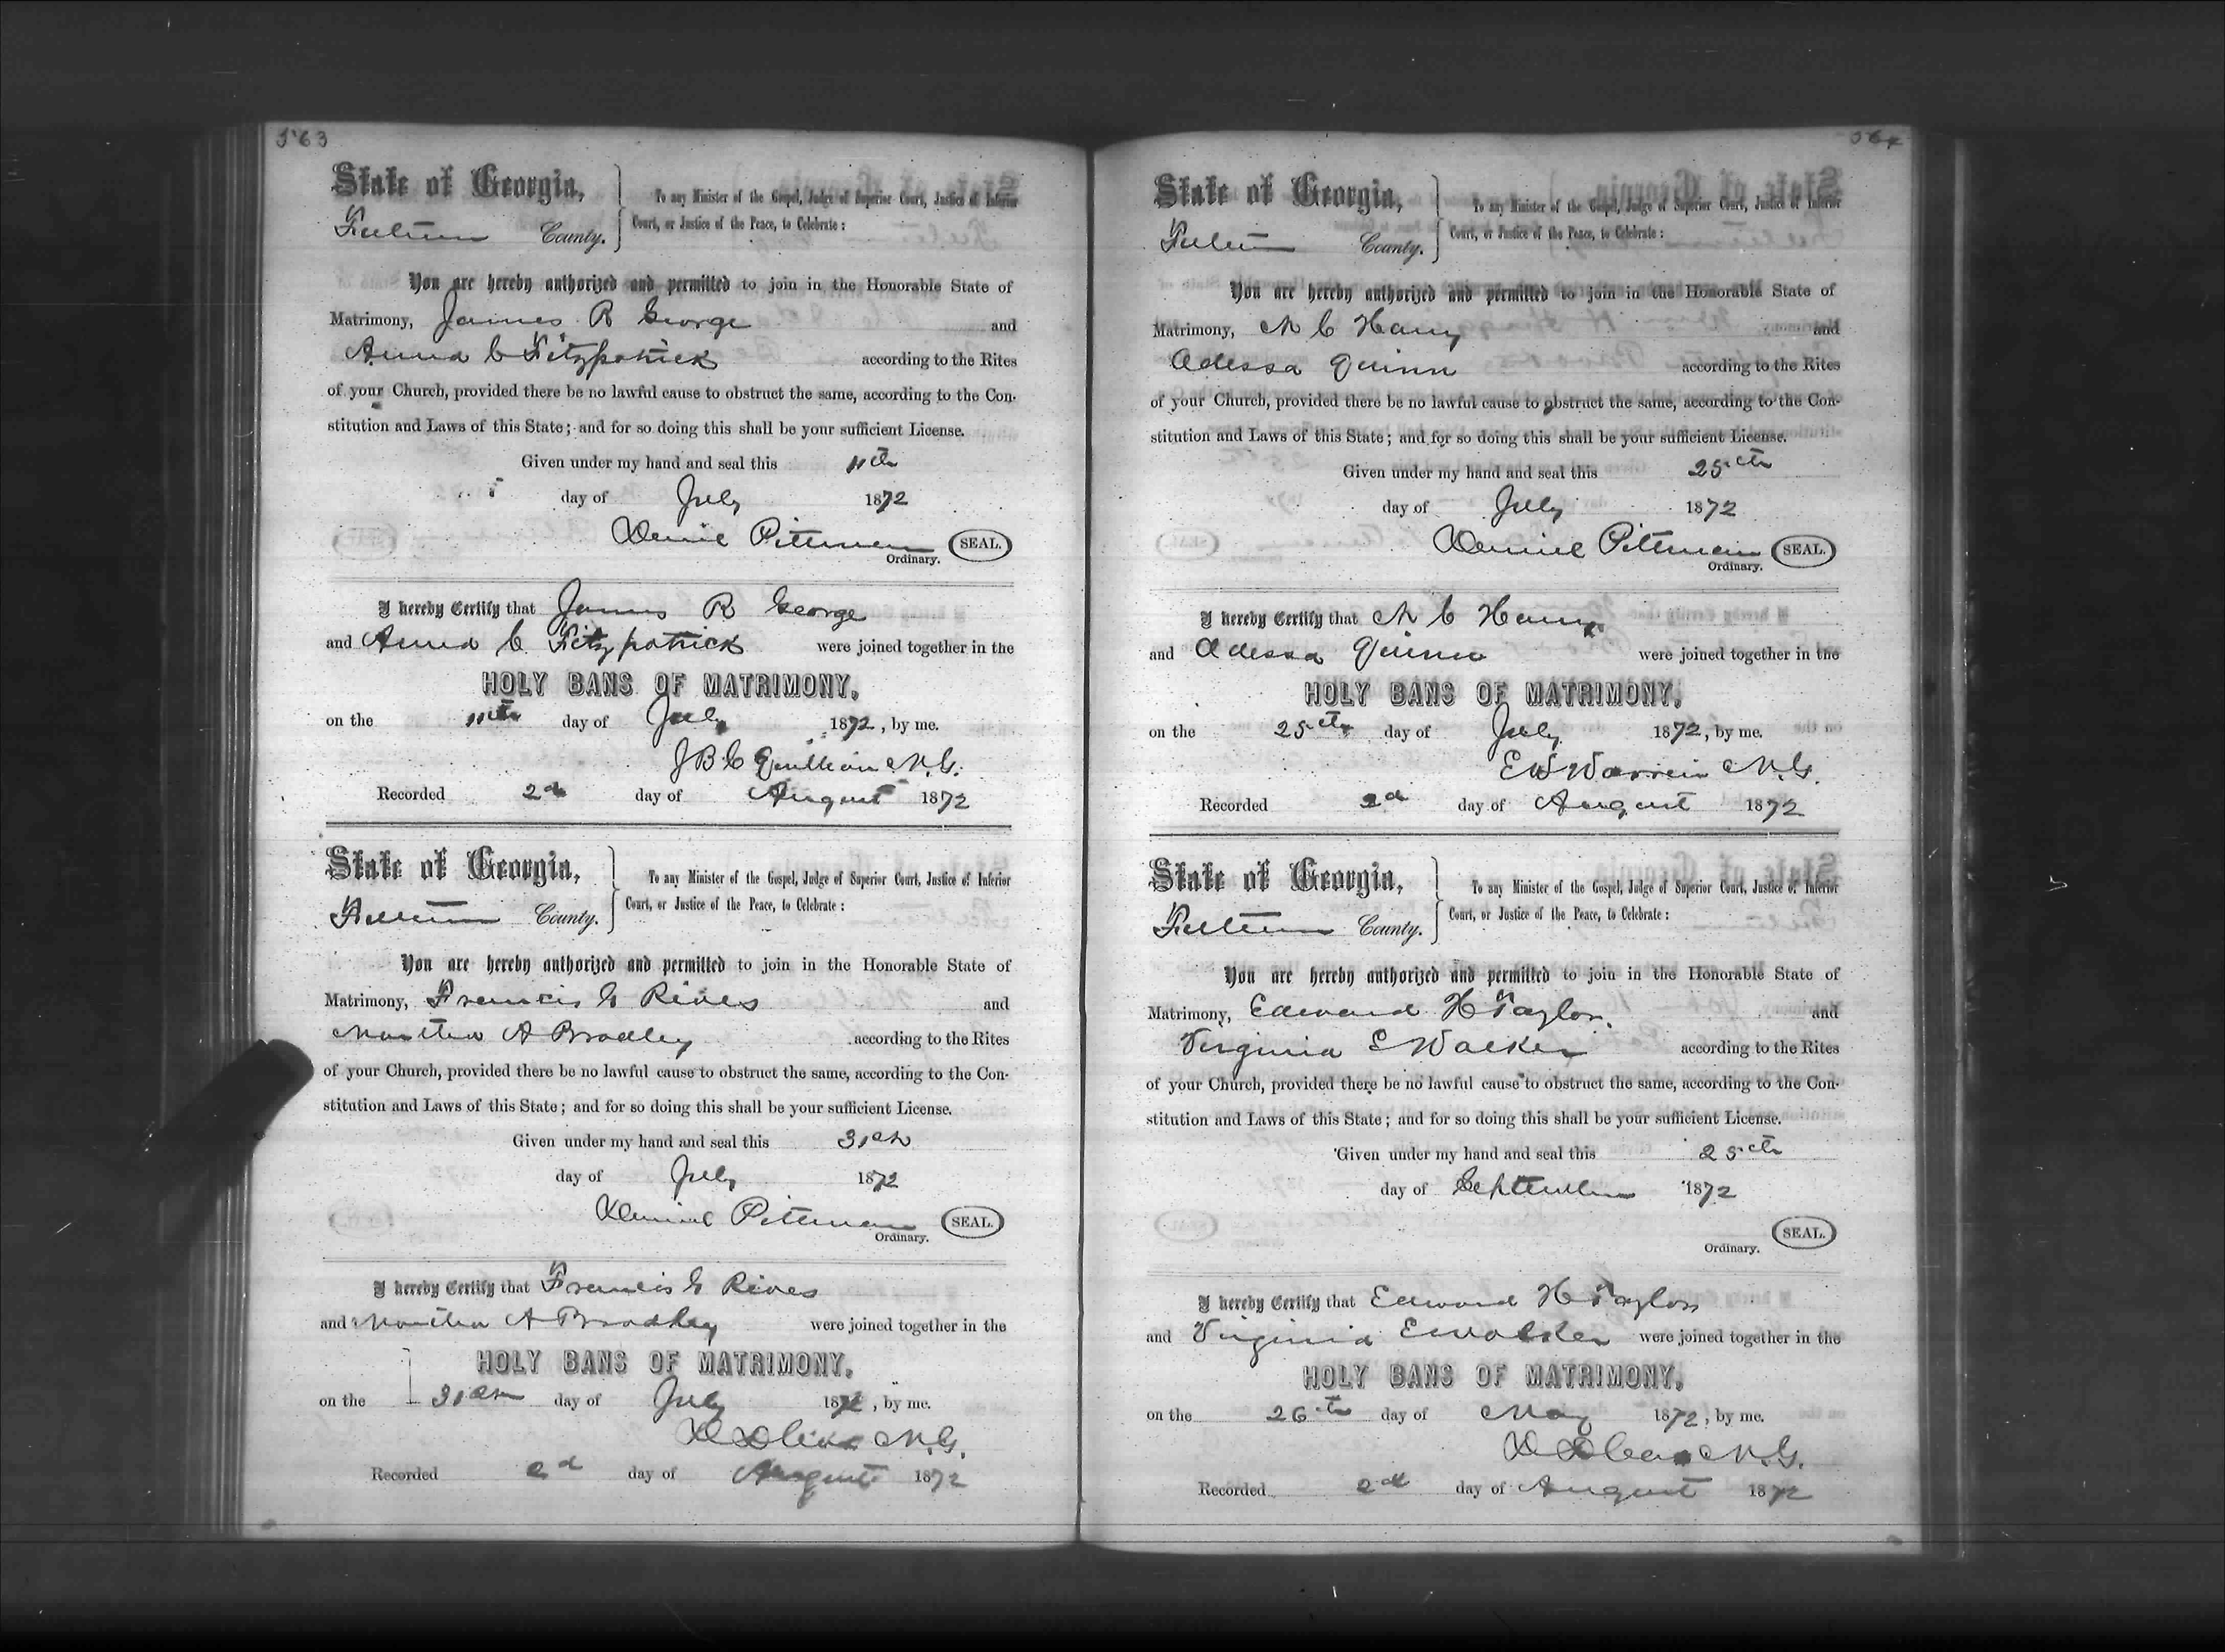 563
State of Georgia,
Fulton County.
To any Minister of the Gospel, Judge of Superior Court, Justice of Inferior
Court, or Justice of the Peace, to Celebrate:
You are hereby authorized and permitted to join in the Honorable State of
Matrimony, James R George and
Anna C Fitzpatrick according to the Rites
of your Church, provided there be no lawful cause to obstruct the same, according to the Con-
stitution and Laws of this State; and for so doing this shall be your sufficient License.
Given under my hand and seal this 11th
day of July 1872
Daniel Pittman SEAL.
Ordinary.
I hereby Certify that James R George
and Anna C. Fitzpatrick were joined together in the
HOLY BANS OF MATRIMONY,
on the 11th day of July 1872, by me.
J B C Quillian M.G.
Recorded 2d day of August 1872
State of Georgia,
Fulton County.
To any Minister of the Gospel, Judge of Superior Court, Justice of Inferior
Court, or Justice of the Peace, to Celebrate:
You are hereby authorized and permitted to join in the Honorable State of
Matrimony, Francis G Rives and
Martha A Bradley according to the Rites
of your Church, provided there be no lawful cause to obstruct the same, according to the Con-
stitution and Laws of this State; and for so doing this shall be your sufficient License.
Given under my hand and seal this 31st
day of July 1872
Daniel Pittman SEAL.
Ordinary.
I hereby Certify that Francis G Rives
and Martha A Bradley were joined together in the
HOLY BANS OF MATRIMONY,
on the 31st day of July 1872, by me.
M.G.
Recorded 2d day of August 1872
564
State of Georgia,
Fulton County.
To any Minister of the Gospel, Judge of Superior Court, Justice of Inferior
Court, or Justice of the Peace, to Celebrate:
You are hereby authorized and permitted to join in the Honorable State of
Matrimony, C and
Adessa Quinn according to the Rites
of your Church, provided there be no lawful cause to obstruct the same, according to the Con-
stitution and Laws of this State; and for so doing this shall be your sufficient License.
Given under my hand and seal this 25th
day of July 1872
Daniel Pittman SEAL.
Ordinary.
I hereby Certify that C
and Adessa Quinn were joined together in the
HOLY BANS OF MATRIMONY,
on the 25th day of July 1872, by me.
E W Warren M.G.
Recorded 2d day of August 1872
State of Georgia,
Fulton County.
To any Minister of the Gospel, Judge of Superior Court, Justice of Inferior
Court, or Justice of the Peace, to Celebrate:
You are hereby authorized and permitted to join in the Honorable State of
Matrimony, Edward H Taylor. and
Virginia E Walker according to the Rites
of your Church, provided there be no lawful cause to obstruct the same, according to the Con-
stitution and Laws of this State; and for so doing this shall be your sufficient License.
Given under my hand and seal this 25th
day of September 1872
SEAL.
Ordinary.
I hereby Certify that Edward H Taylor
and Virginia E Walker were joined together in the
HOLY BANS OF MATRIMONY,
on the 26th day of May 1872, by me.
M.G.
Recorded 2d day of August 1872